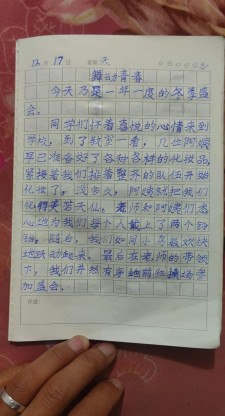 12月17日 星期天
舞动青春
今天乃是一年一度的冬季盛
会。
同学们怀着喜悦的心情来到
学校，到了教室一看，几位阿姨
早已准备好了各种各样的化妆品
紧接着我们排着整齐的队伍开始
化妆了，没多久，阿姨就把我们
化得美若天仙。老师和阿姨们尽
心地为我们每个人戴上了两个铃
铛。随后，我们如同小鸟般欢快
地跃动起来。最后在老师的带领
下，我们井然有序地前往操场参
加盛会。